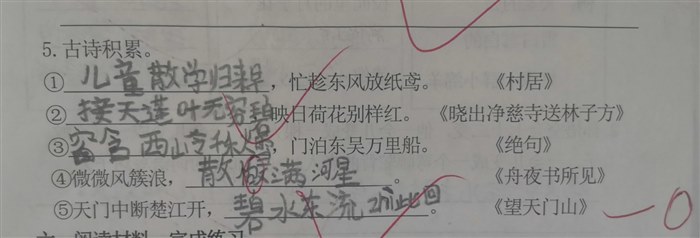 5.古诗积累。
①儿童散学归来早，忙趁东风放纸鸢。《村居》
②接天莲叶无穷碧映日荷花别样红。《晓出净慈寺送林子方》
③窗含西岭千秋，门泊东吴万里船。《绝句》
④微微风簇浪，散做满河星。《舟夜书所见》
⑤天门中断楚江开，碧水东流至此回。《望天门山》 —0
六、阅读材料，完成练习